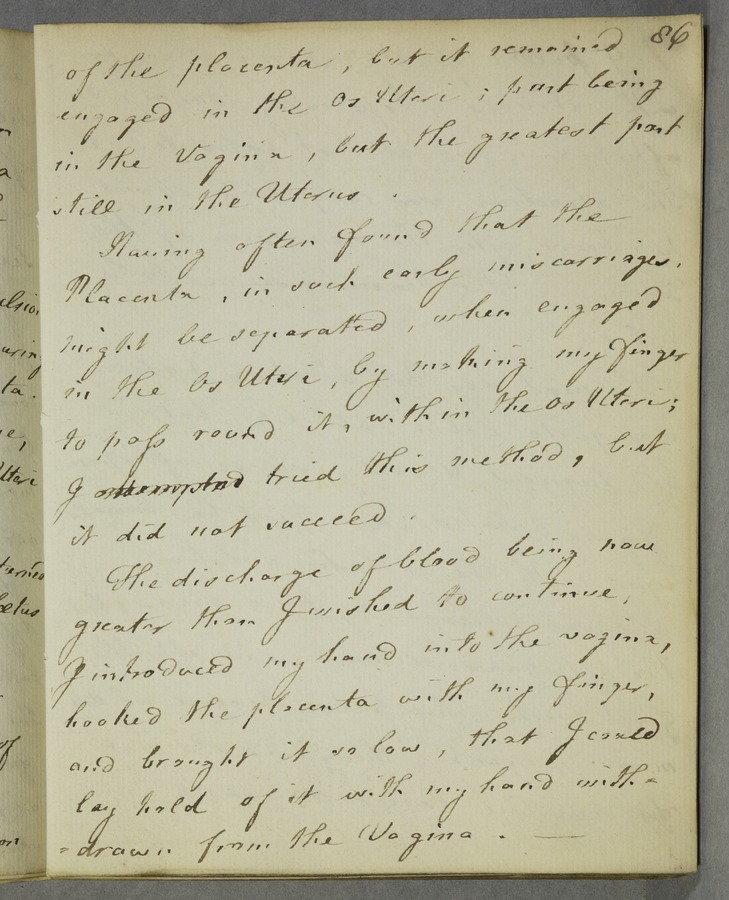 86
of the placenta, but it remained
engaged in the Os Uteri; part being
in the Vagina, but the greatest part
still in the Uterus.
Having often found that the
Placenta, in such early miscarriages,
might be separated, when engaged
in the Os Uteri, by making my finger
to pass round it, within the Os Uteri;
I attempted tried this method, but
it did not succeed.
The discharge of blood being now
greater than I wished to continue,
I introduced my hand into the vagina,
hooked the placenta with my finger,
and brought it so low, that I could
lay hold of it with my hand with=
=drawn from the Vagina. —
ta.
Uteri
of